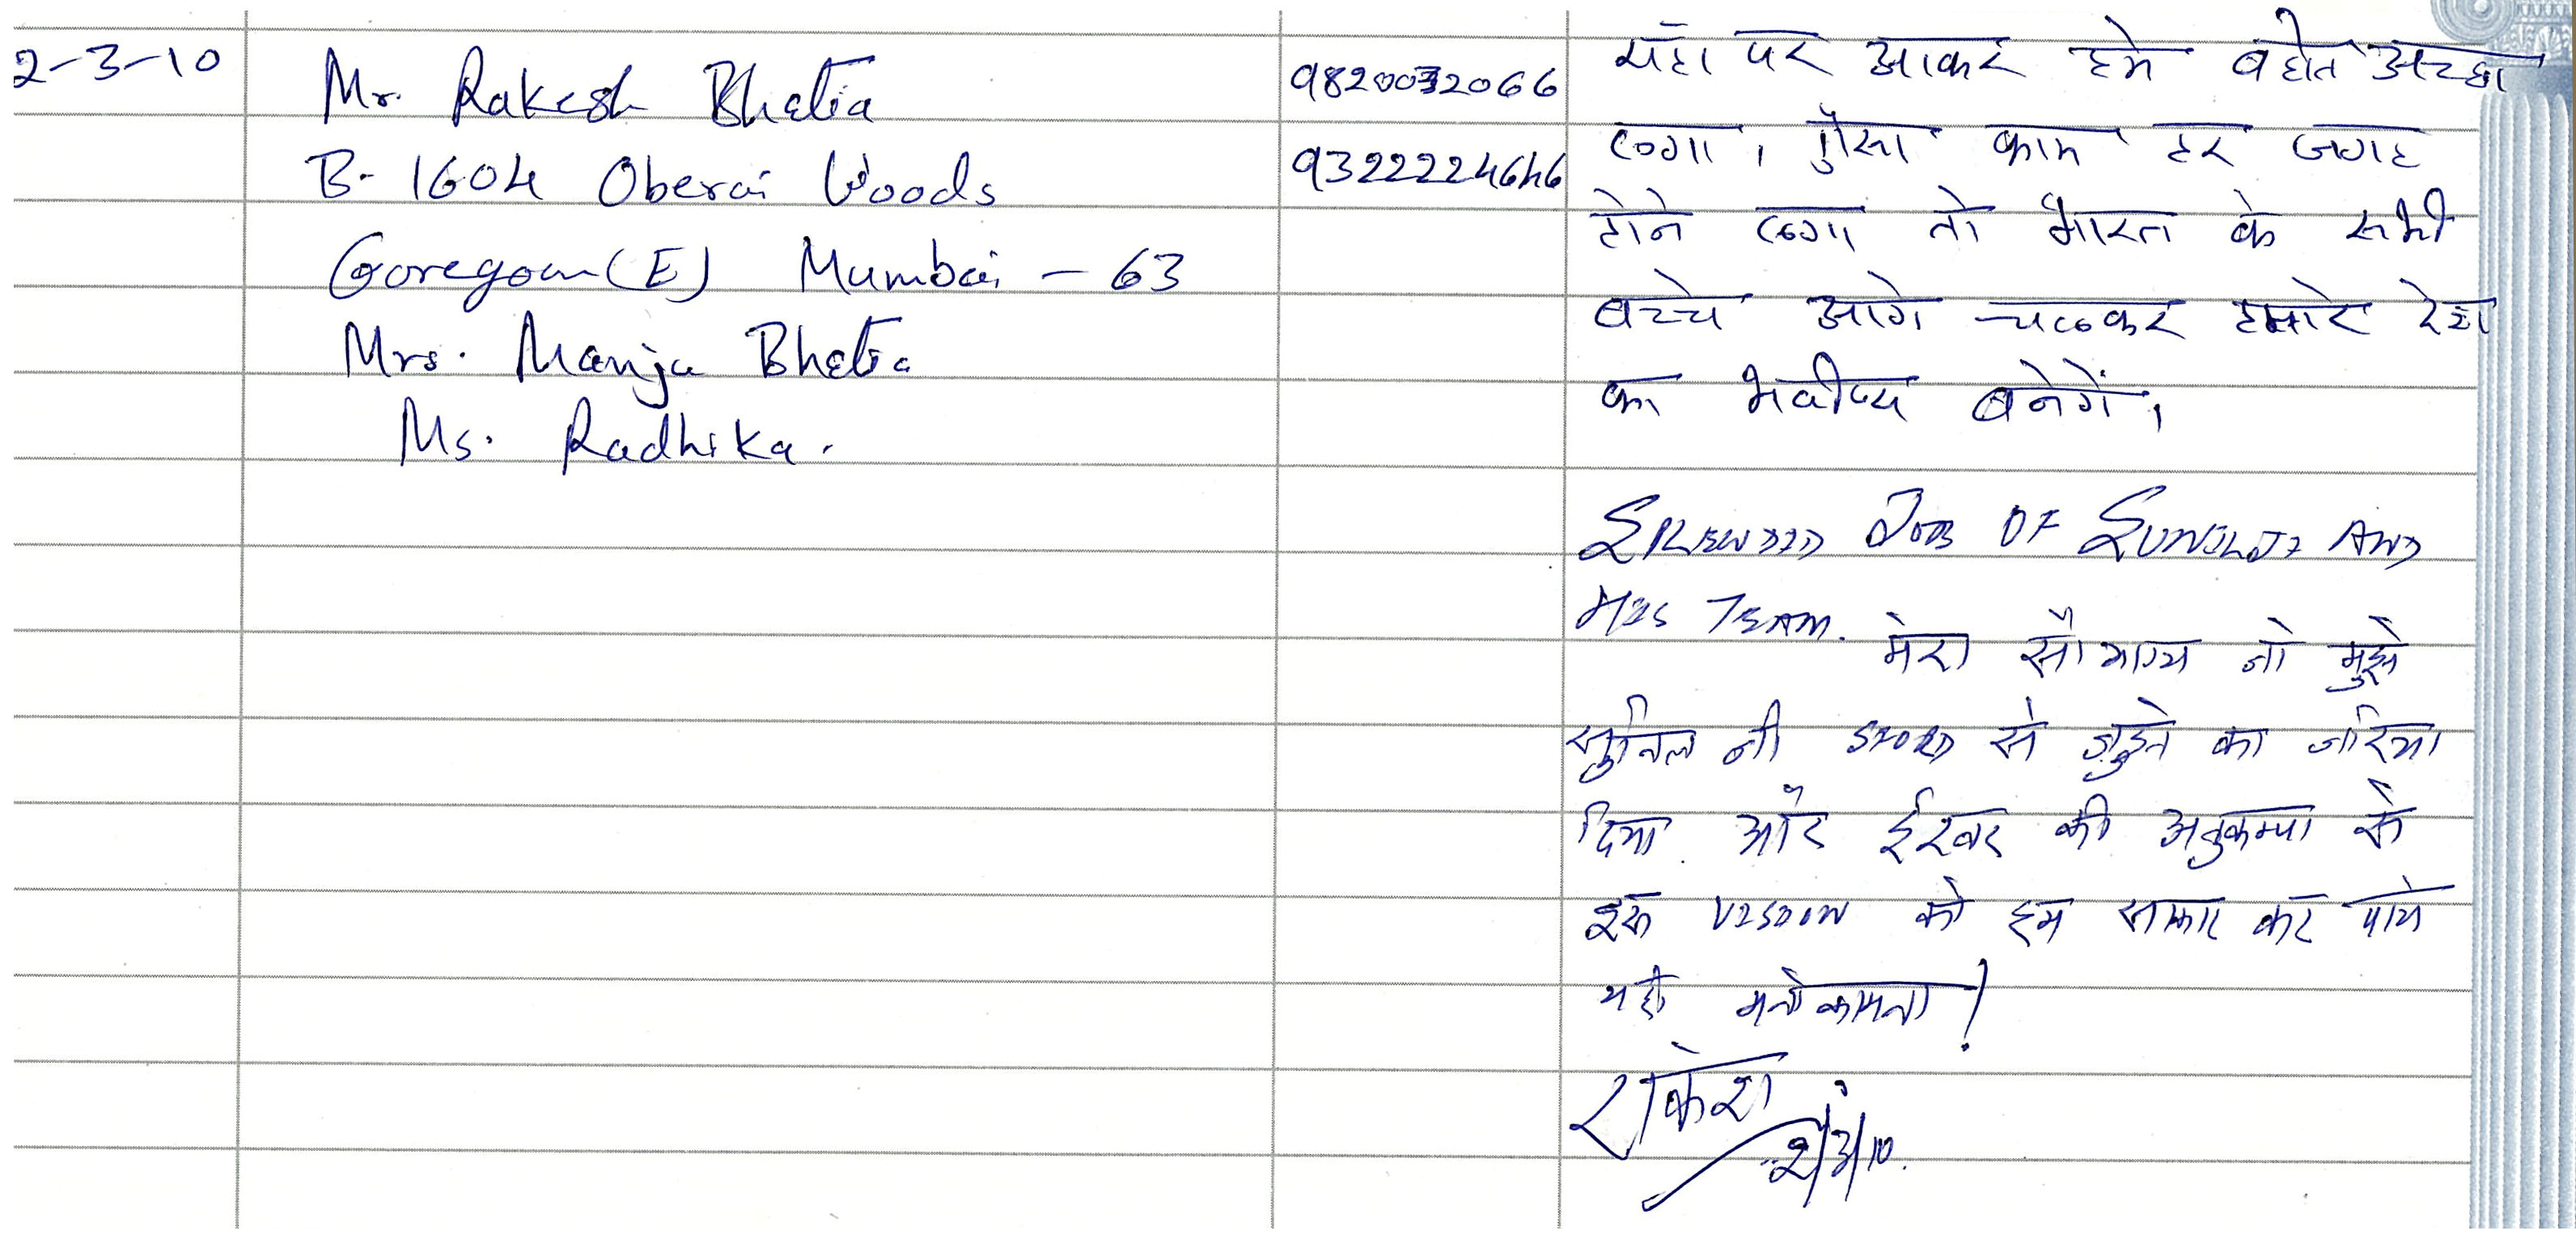 2-3-10
Mr. Rakesh Bhatia
B-1604 Oberoi Woods
Goregaon (E) Mumbai - 63
Mrs. Manju Bhatia
Ms. Radhika.
9820032066
9322224646
यहा पर आकर हमे बहोत अच्छा
लगा, ऐसा काम हर जगह
होने लगा तो भारत के सभी
बच्चे आगे चलकर हमारे देश
का भवीष्य बनेगें,
SPLENDID JOB OF SUNILJI AND
HIS TEAM. मेरा सौभाग्य जो मुझे
सुनिल जी से जुड़ने का जरिया
दिया और ईश्वर की अनुकम्पा से
इस VISION को हम साकार कर पाये
यही मनोकामना!
राकेश
2/3/10.